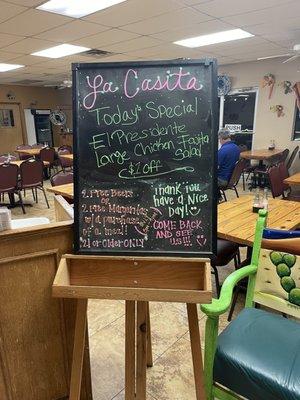 La Casita
Today's Special
El Presidente
Large Chicken Fajita
Salad
$1 off
1 Free Beers
or
2 Free Margaritas
w/a purchase
of a meal.
21 or older ONLY
Thank you
have a Nice
Day!
COME BACK
AND SEE
US!!!
PUSH